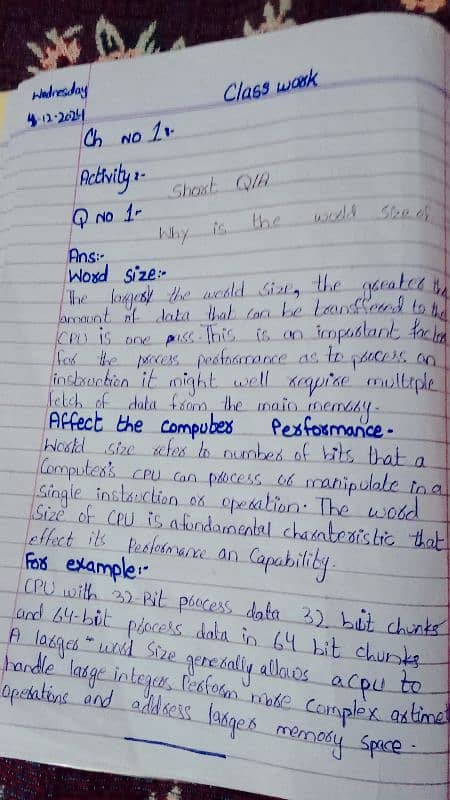 Wednesday
4-12-2024
Class work
Ch No 1:-
Activity:-
Short Q/A
Q No 1-
Why is the world size of
Ans:-
Word size:-
The largest the world size, the greater the
amount of data that can be transffered to the
CPU is one pass. This is an important factor
for the process performance as to process an
instruction it might well require multeple
fetch of data from the main memory.
Affect the computer Performance-
World size refer to number of bits that a
Computer's CPU can process or manipulate in a
single instruction or operation. The word
Size of CPU is a fundamental charateristic that
effect its Performance an Capability.
For example:-
CPU with 32-Bit process data 32 bit chunks
and 64-bit process data in 64 bit chunks
A larger - word size generally allows a cpu to
handle large integers, Perform more complex
operations and address larger memory space.